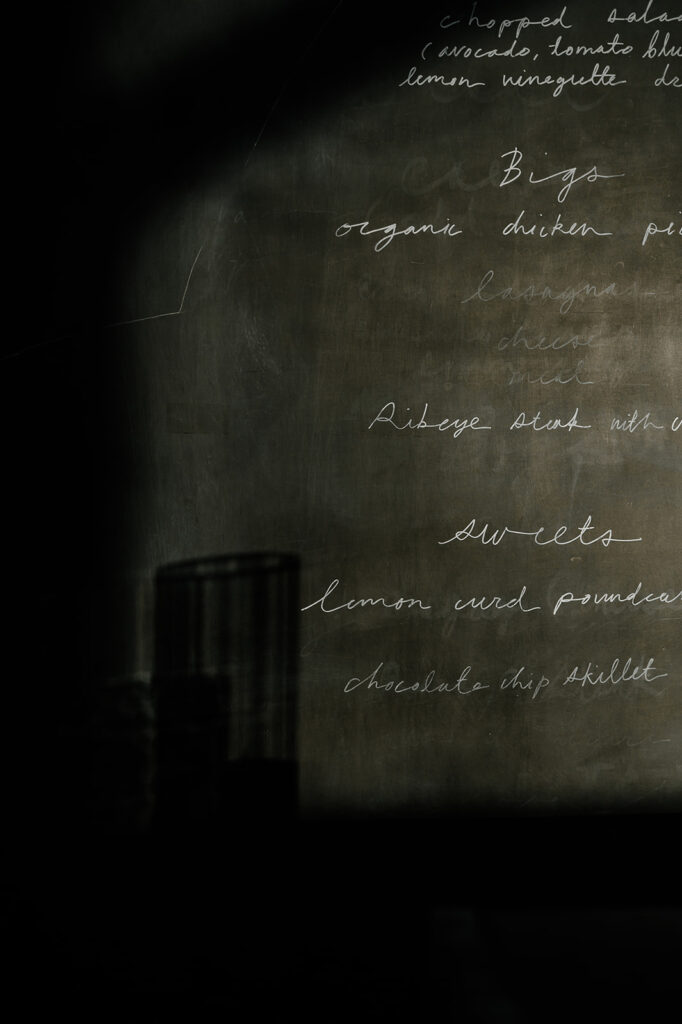 chopped salad
(avocado, tomato blu
lemon vinegrette dr
Bigs
organic chicken pi
lasagna
cheese
Ribeye steak with
sweets
lemon curd poundca
chocolate chip skillet